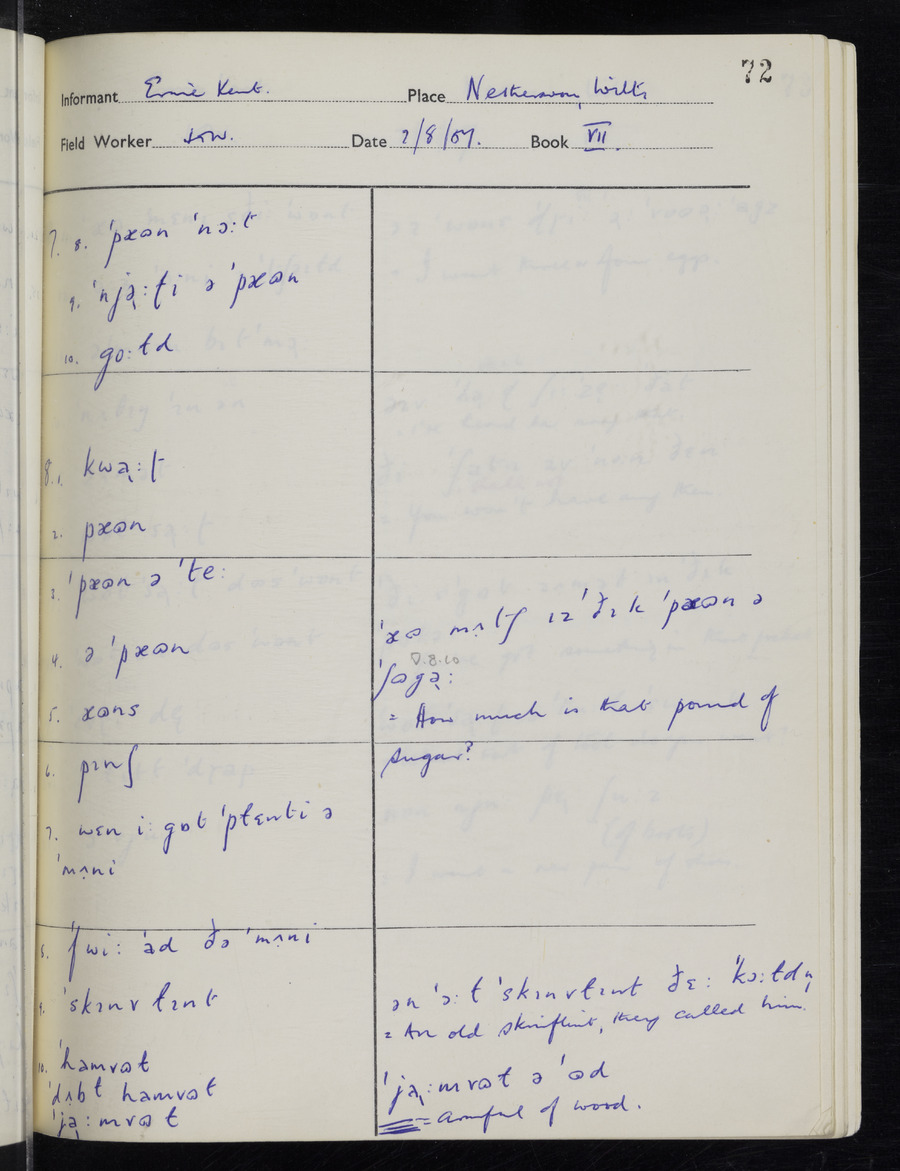 72
Informant Ernie Kent. Place Netheravon, Wilts
Field Worker Date 2/8/57. Book VII.
7. 8. ˈpæɷn ˈnɔ:t
9. ə ˈpæɷn
10. go:td
8. 1. kwə̢:ʈ
2. pæɷn
3. ˈpæɷn ə ˈte:
4. ə ˈpæɷn
5. æɷns
6. pɪnʃ
7. wɛn i: gɒt ˈptɛnti ə
ˈmʌ̣ni
8. ˈʃwi: ˈad ðə ˈmʌ̣ni
9. ˈskɪnvtɪnt
10. ˈhamvɷt
ˈdʌbt hamvɷt
ˈjə̢:mvɷt
ˈæɷ mʌ̣tʃ ɪz ˈðɪk ˈpæɷn ə
V.8.10
ˈʃɷgə̢:
= How much is that pound of
sugar?
ən ˈɔ:t ˈskɪnvtɪnt ðɛ: ˈkɔ:tdn̩
= An old skinflint, they called him.
ˈjə̢:mvɷt ə ˈɷd
= armful of wood.